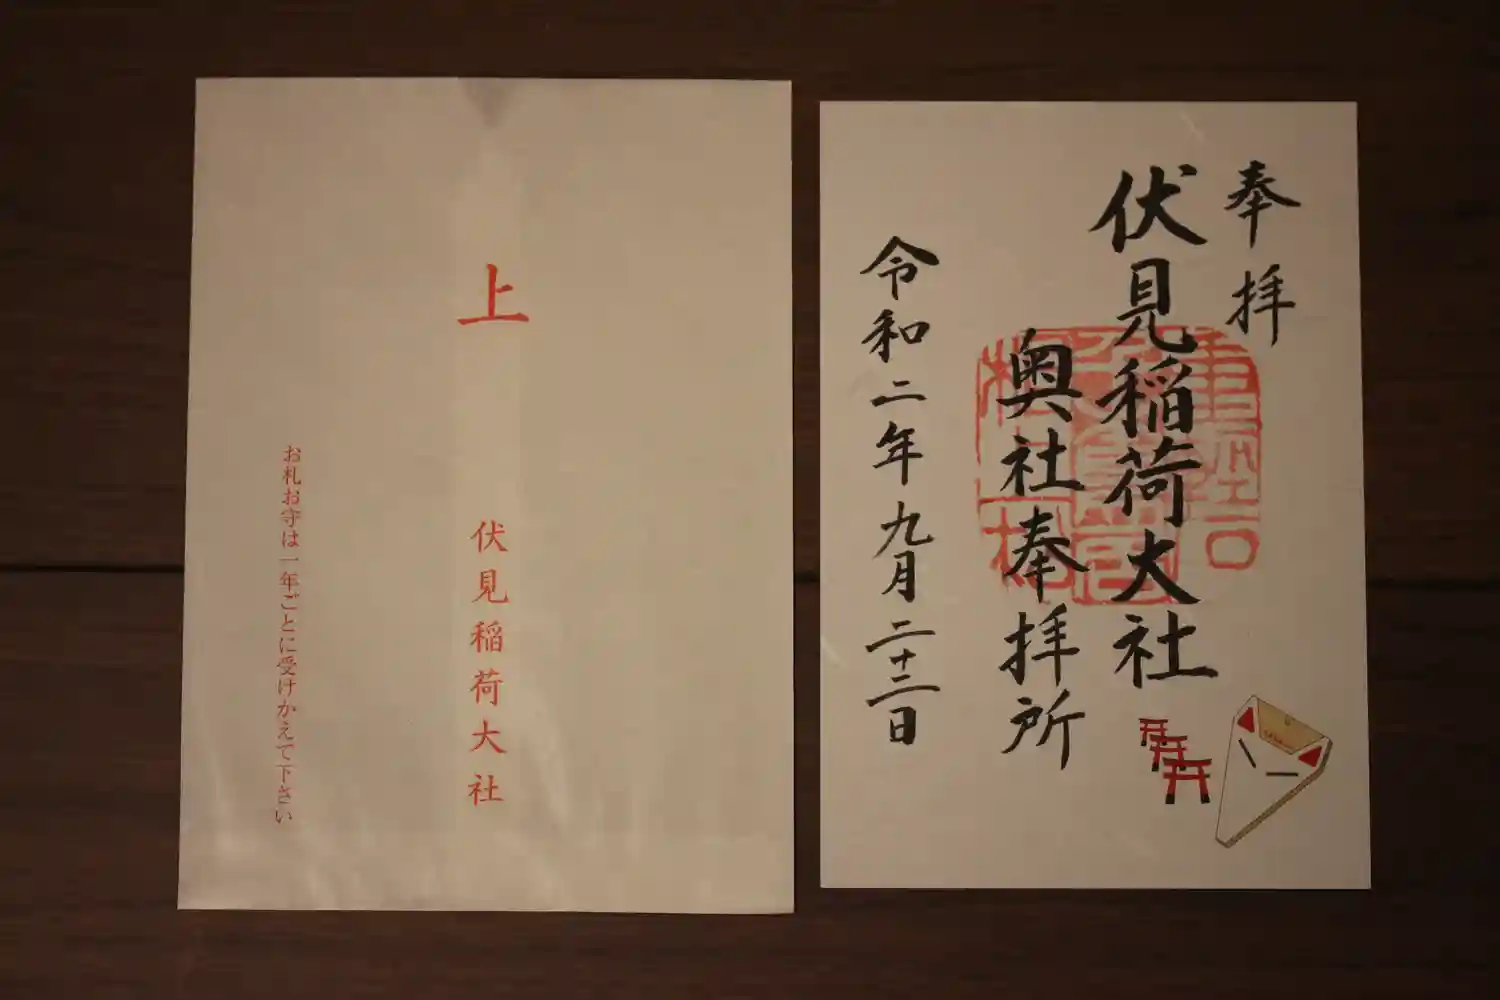 上
伏見稲荷大社
お札お守は一年ごとに受けかえて下さい
奉拝
伏見稲荷大社
奥社奉拝所
令和二年九月二十二日